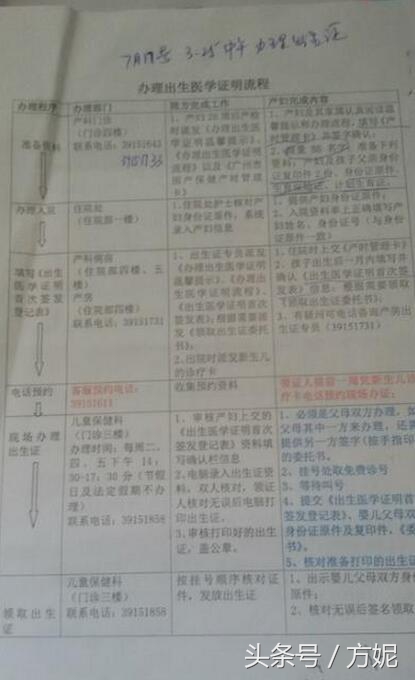 7月17号
办理出生医学证明流程
办理程序 办理部门 院方完成工作 产妇完成内容
准备资料
产科门诊
（门诊四楼）
联系电话：39151643
1、产妇28周后产检
时派发《办理出生医
学证明温馨提示》、
《办理出生医学证明
流程》以及《广州市
围产保健产时管理
卡》
1、产妇及其家属认真阅读温
馨提示和办理流程，填写《产
时管理卡》并签字确认；
准备下列
资料：产妇及孩子父亲身份证
复印件2份、身份证原件、
办理入院
住院处
（住院部一楼）
1、住院处护士核对产
妇身份证原件，系统
录入产妇信息
1、提供产妇身份证原件；
2、入院资料单上正确填写产
妇姓名、身份证号（与身
份证原件一致）
填写《出生
医学证明
首次签发
登记表》
产科病房
（住院部四楼、五
楼）
产房
（住院部四楼）
联系电话：39151731
1、出生证专员派发
《办理出生医学证明
温馨提示》、《办理出
生医学证明流程》、
《出生医学证明首次
签发表》；根据需要派
发《领取出生证委托
书》；
2、出院时派发新生儿
的诊疗卡
1、住院时上交《产时管理卡》
2、孩子出生后一月内填写并
确认《出生医学证明首次签
发表》信息；根据需要领取
《领取出生证委托书》；
3、有疑问可电话咨询产房出
生证专员（39151731）
电话预约
客服预约电话：
39151611
收集预约资料
领证人提前一周凭新生儿诊
疗卡电话预约现场办证：
现场办理
出生证
儿童保健科
（门诊三楼）
办理时间：每周二、
四、五下午14：
30-17：30分（节假
日及法定假期不办
理）
联系电话：39151858
1、审核产妇上交的
《出生医学证明首次
签发登记表》资料填
写确认栏信息
2、电脑录入出生证资
料，双人核对，领证
人核对无误后电脑打
印出生证。
3、审核打印好的出生
证，盖公章。
1、必须是父母双方办理，如
父母其中一方来办理，还需
提供另一方签字（按手指印）
的委托书。
2、挂号处取免费诊号
3、等待叫号
4、提交《出生医学证明首
签发登记表》、婴儿父母双
身份证原件及复印件，《委
书》。
5、核对准备打印的出生证
领取出生
证
儿童保健科
（门诊三楼）
联系电话：39151858
按挂号顺序核对证
件，发放出生证
1、出示婴儿父母双方身
原件；
2、核对无误后签名领取
头条号 / 方妮